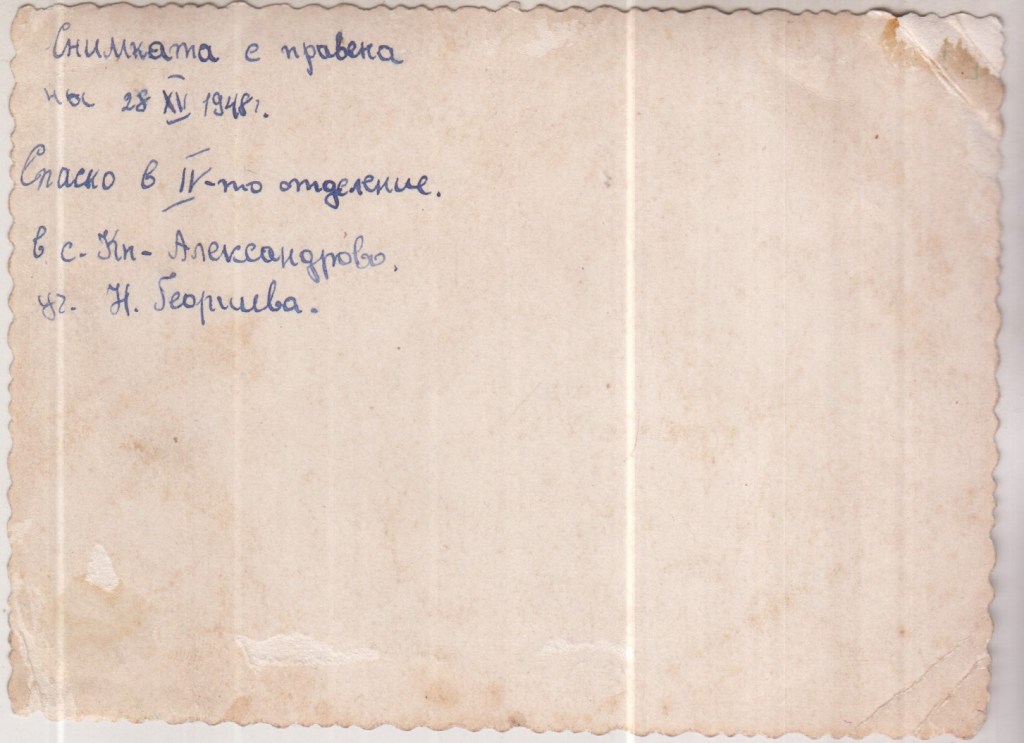 Снимката е правена
ны 28 XV 1948г.
Спаско в IV-то отделение.
в с. Кп- Александрово.
уч. Н. Георгиева.